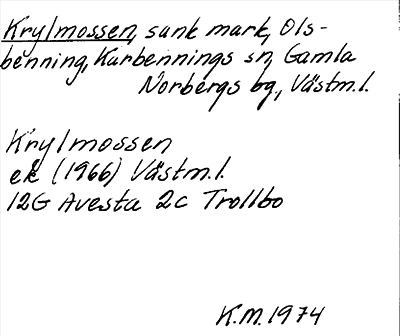 Krylmossen, sank mark, Ols-
benning, Karbennings sn, Gamla
Norbergs bg., Västm.l.
Krylmossen
ek (1966) Västm.l.
12G Avesta 2c Trollbo
K.M. 1974